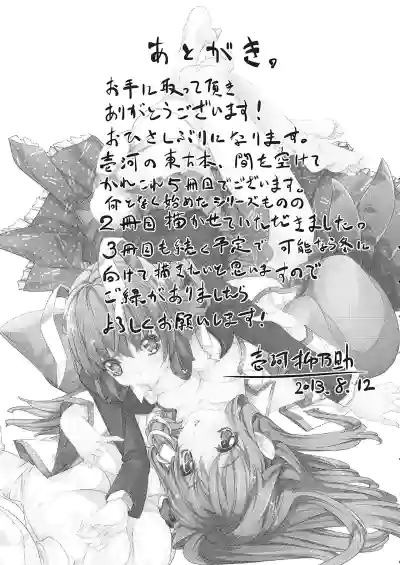 あとがき。
お手に取って頂き
ありがとうございます!
おひさしぶりになります。
壱河の東方本、間を空けて
かれこれ5冊目でございます。
何となく始めたシリーズものの
2冊目描かせていただきました。
3冊目も続く予定で可能なら冬に
向けて描きたいと思いますので
ご縁がありましたら
よろしくお願いします!
壱河柳乃助
2013.8.12